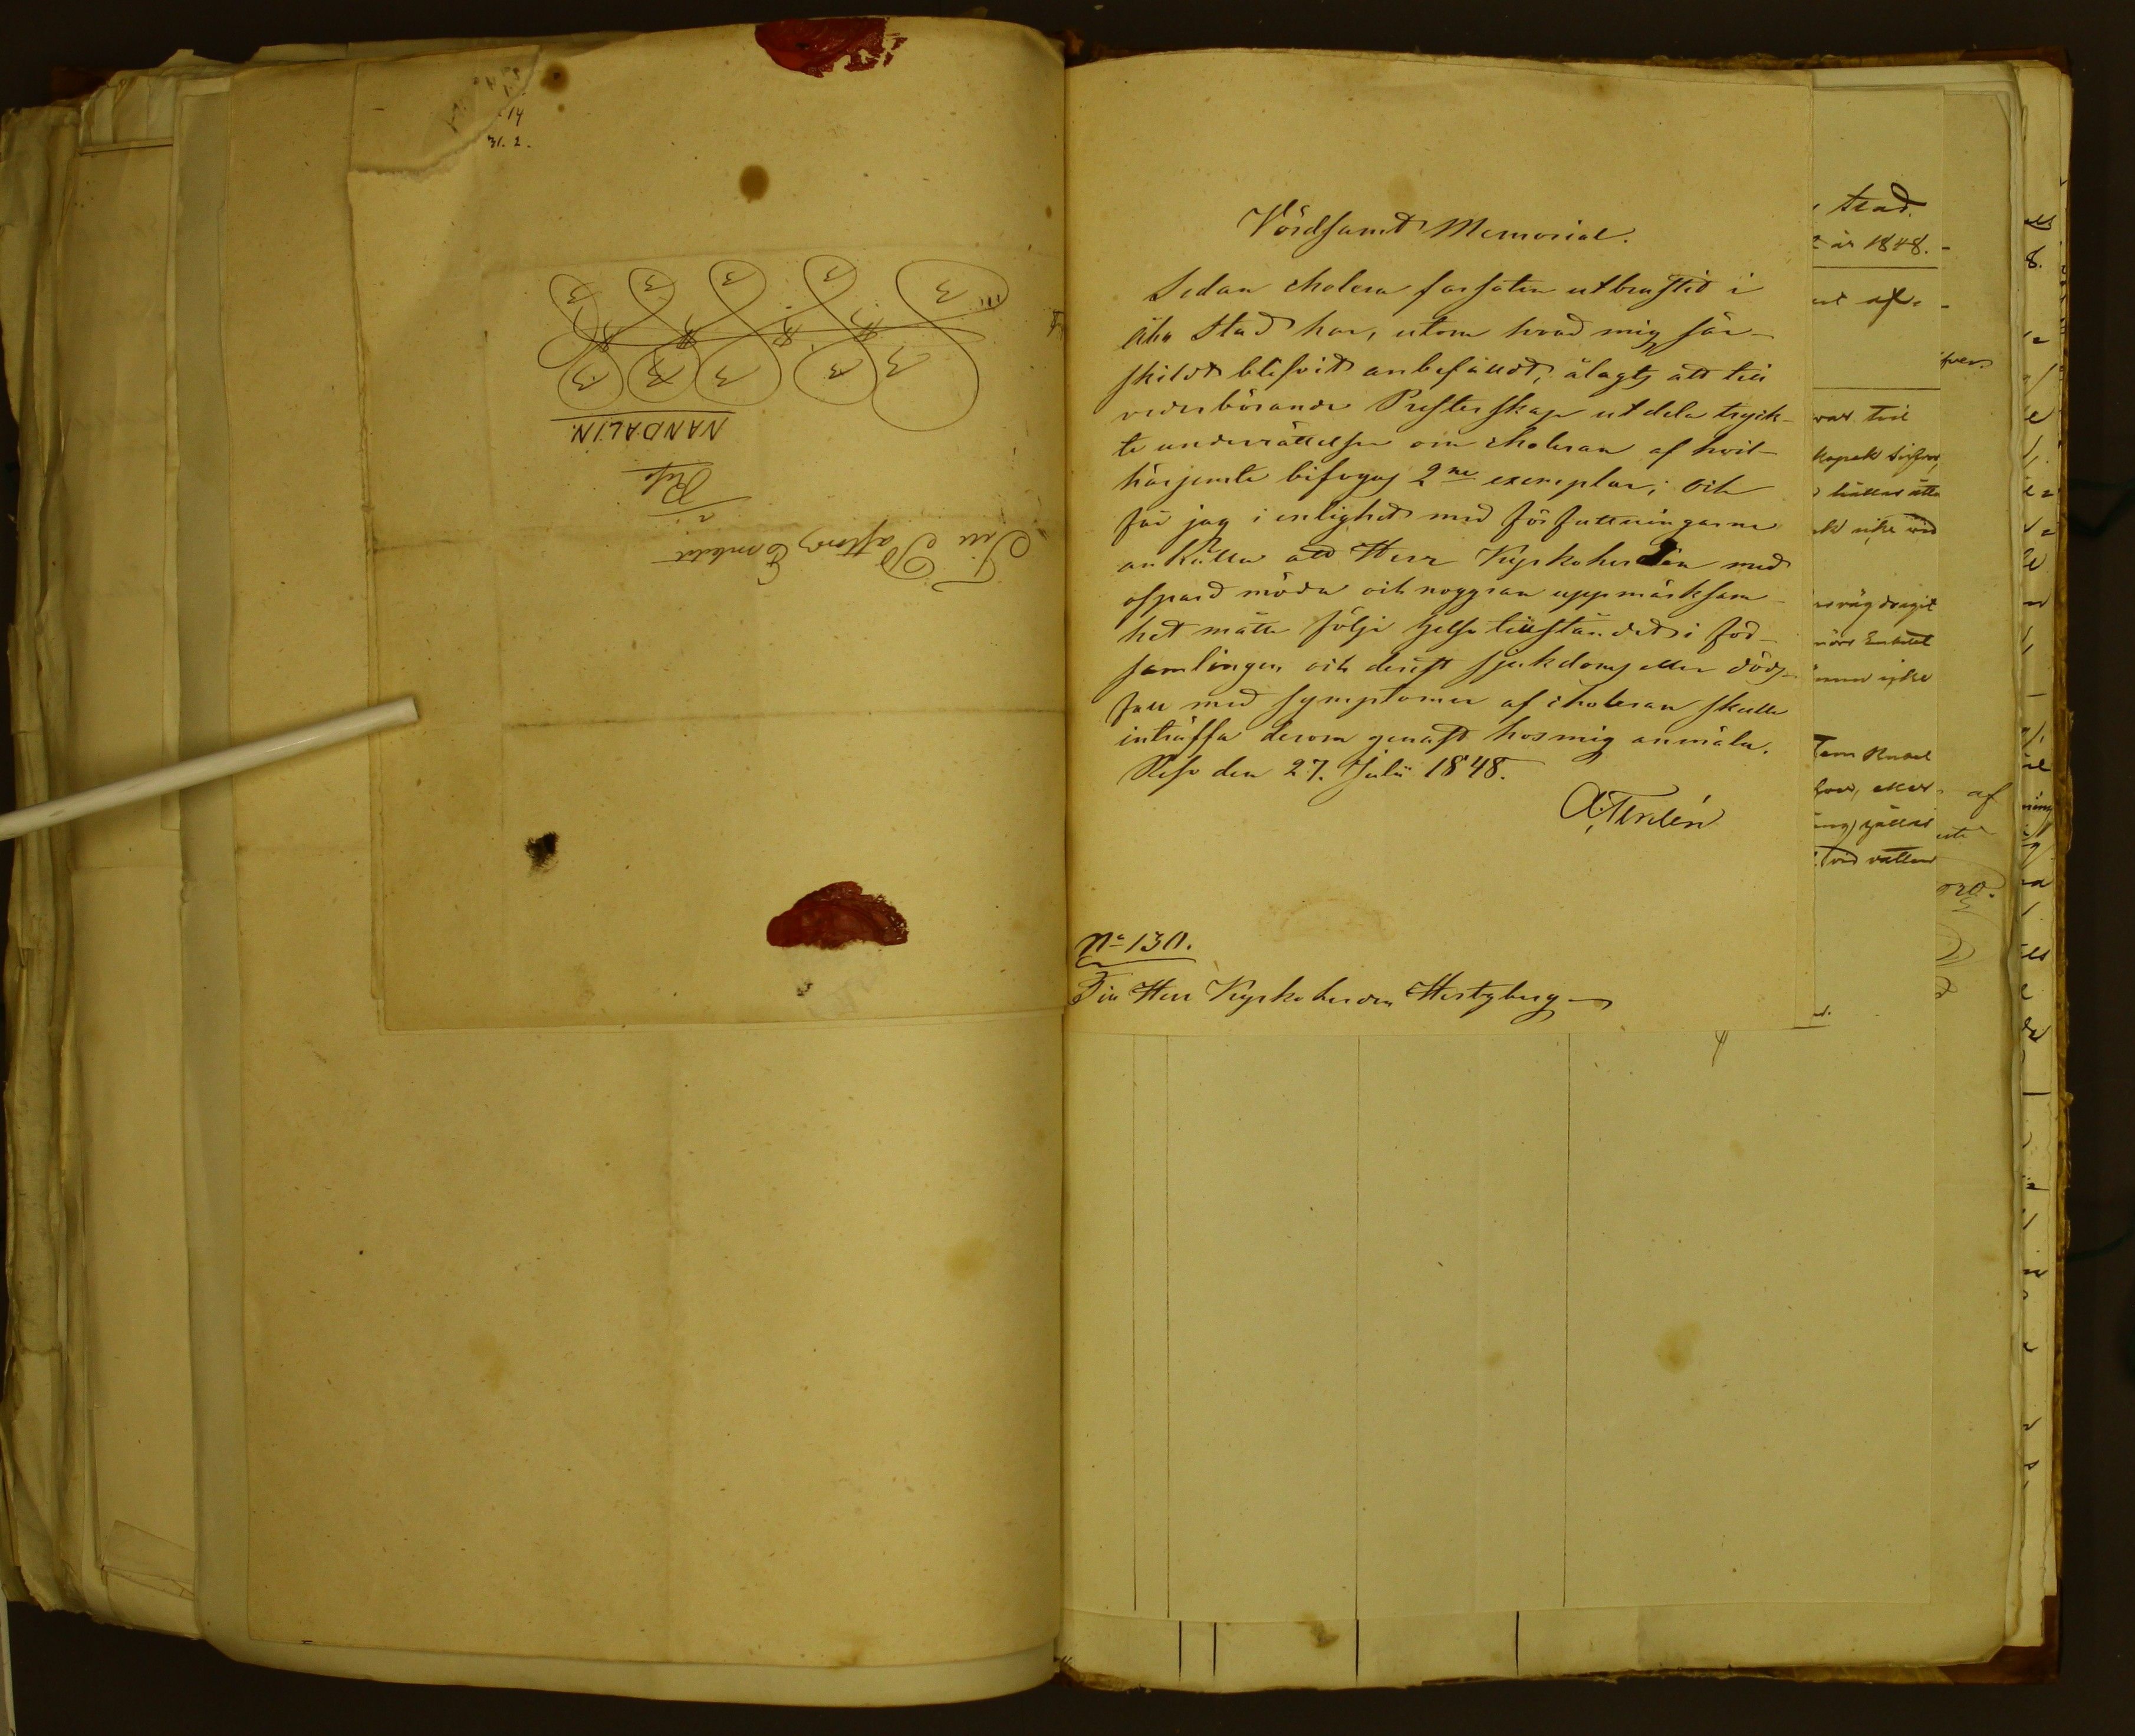 14
31. 2.
NANDALIN.
Till Pastors Embetet
i
Reso
Vördsamt Memorial.
Sedan cholera farsoten utbrustit i
Åbo Stad har, utom hvad mig sär-
skildt blifvit anbefaldt, ålagts att till
vederbörande Presterskap utdela tryck-
te underrättelser om choleran af hvil-
härjemte bifogas 2ne exemplar; och
får jag i enlighet med författningarne
anhålla att Herr Kyrkoherden med
ospard möda och noggran uppmärksam-
het måtte följa helsotillståndet i för-
samlingen och derest sjukdoms eller döds-
fall med symptomer af choleran skulle
inträffa derom genast hos mig anmäla.
Reso den 27. Julii 1848.
No 130.
Till Herr Kyrkoherden Hertzberg
stad.
år 1848.
af
var till
hållas
icke vid
icke
eller
vid
af